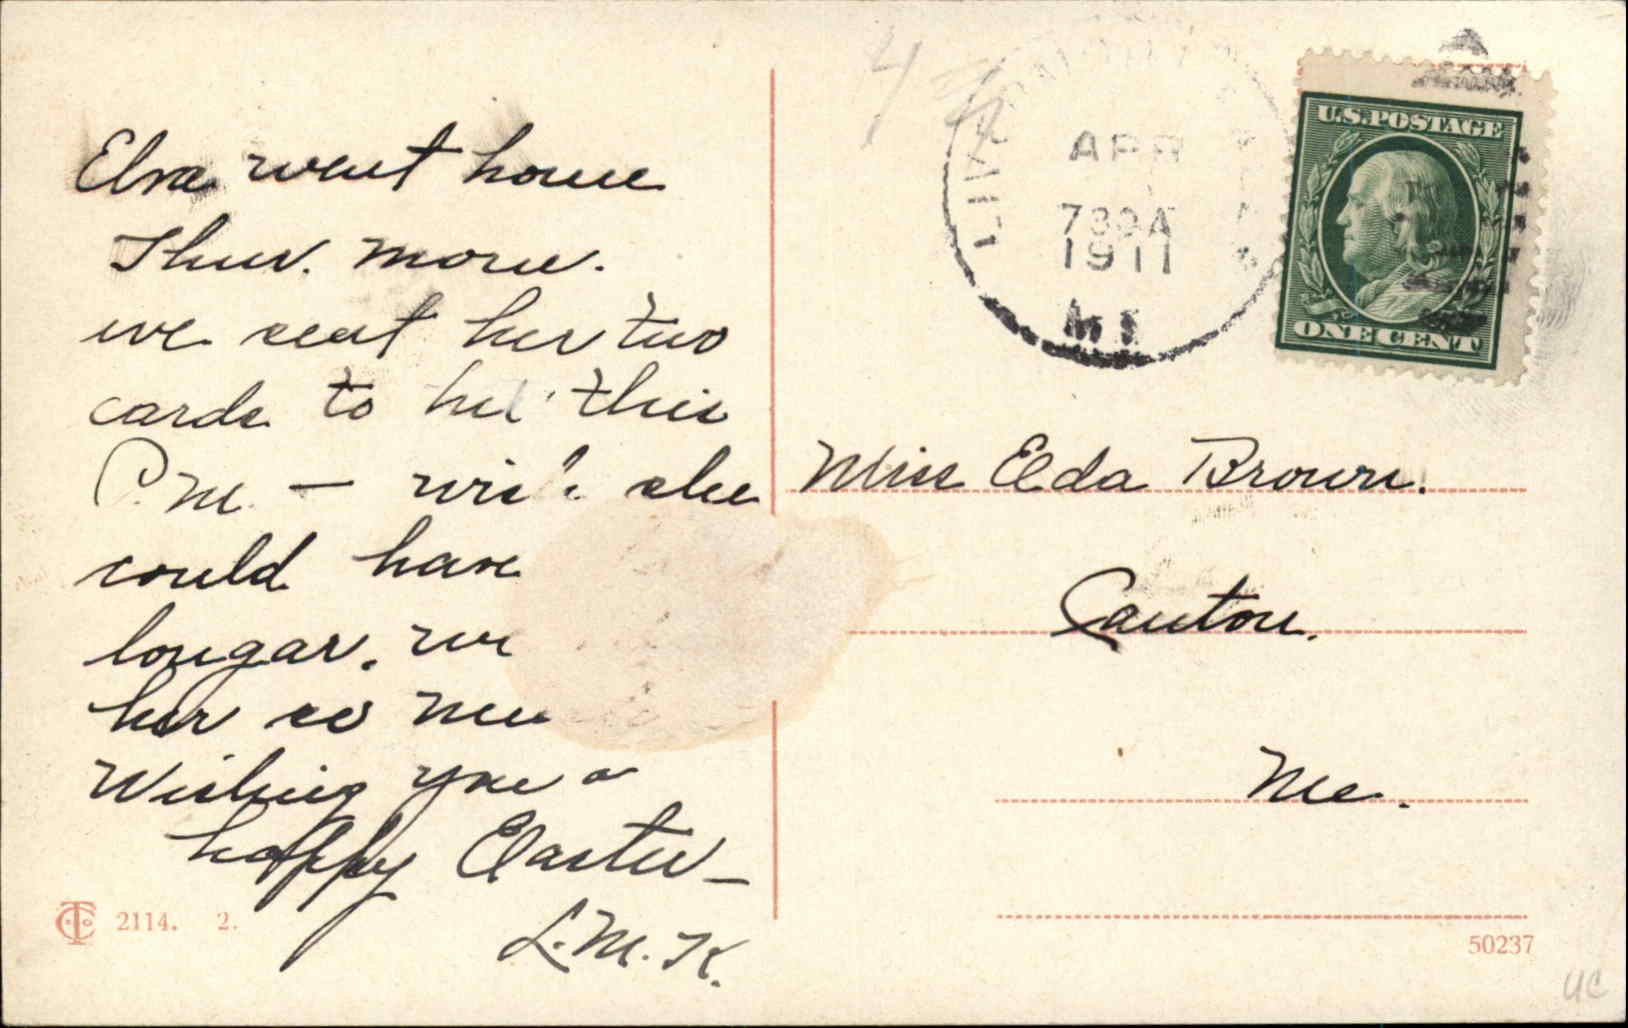 Elva went home
Thur. morn.
we sent her two
cards to her this
P.M. — wish she
could have
longar. we
her so
Wishing you a
happy Easter —
L.M.K.
2114. 2.
APR
730A
1911
ME
U.S. POSTAGE
ONE CENT
Miss Elda Brown.
Canton.
Me.
50237
UC